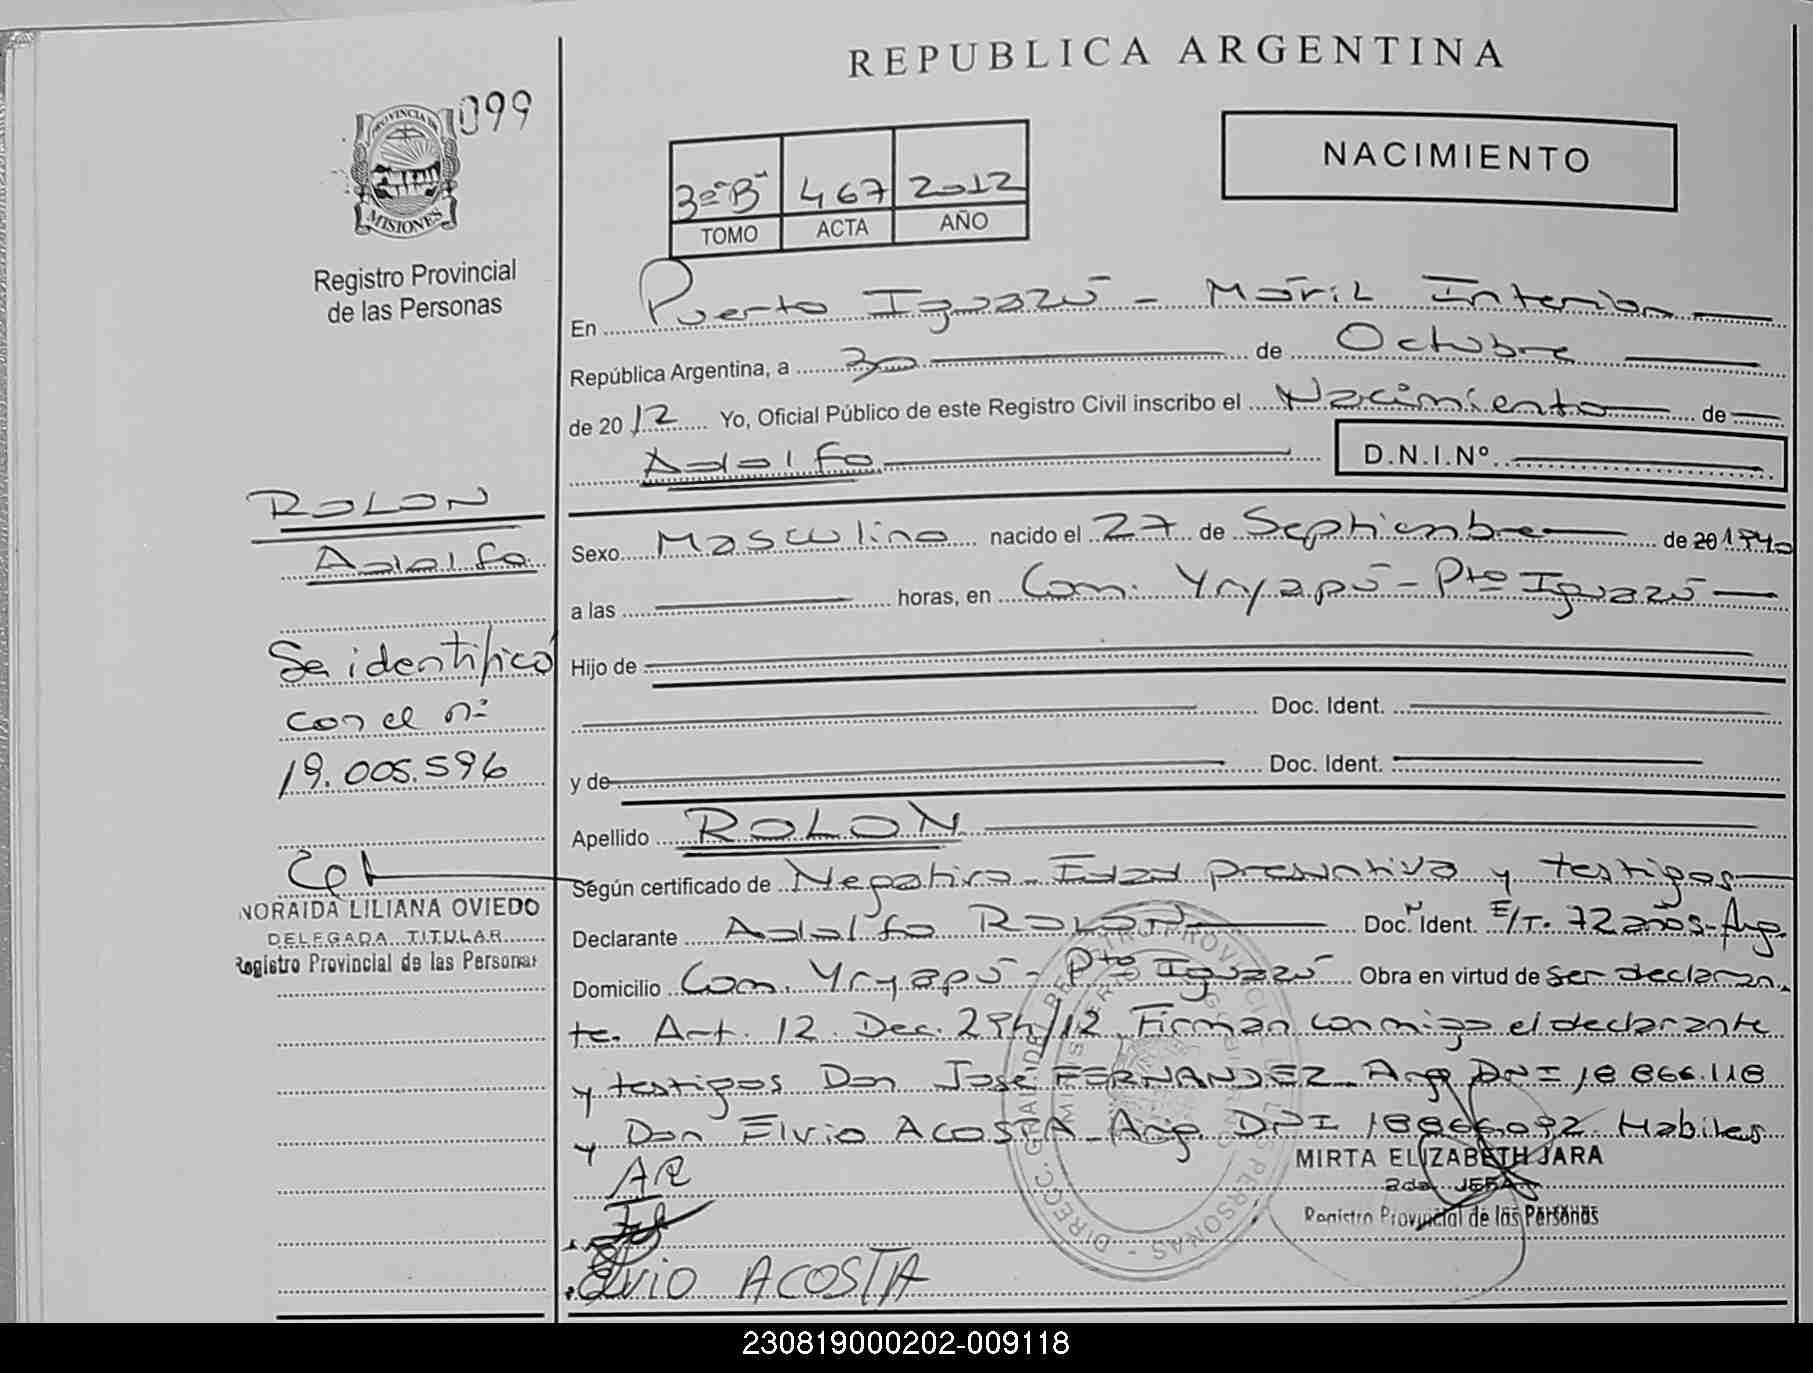 REPUBLICA ARGENTINA
099
PROVINCIA DE
MISIONES
Registro Provincial
de las Personas
NACIMIENTO
3º "B" 467 2012
TOMO ACTA AÑO
En Puerto Iguazú - Móvil Interior
República Argentina, a 30 de Octubre
de 2012 Yo, Oficial Público de este Registro Civil inscribo el Nacimiento de
Adolfo D.N.I.Nº
ROLON
Adolfo
Se identificó
con el nº
19.005.596
NORAIDA LILIANA OVIEDO
DELEGADA TITULAR
Registro Provincial de las Personas
Sexo Masculino nacido el 27 de Septiembre de 20 1940
a las horas, en Com. Yryapú - Pto Iguazú
Hijo de
Doc. Ident.
y de Doc. Ident.
Apellido ROLON
Según certificado de Negativa - Edad presuntiva y testigos
Declarante Adolfo ROLON Doc. Ident. E/T. 72 años - Arg.
Domicilio Com. Yryapú - Pto Iguazú Obra en virtud de ser declaran
te. Art. 12. Dec. 294/12. Firman conmigo el declarante
y testigos Don Jose FERNANDEZ - Arg DNI 18 866.118
y Don Elvio ACOSTA - Arg. DNI 18866092 Habiles
AR
MIRTA ELIZABETH JARA
2da JEFA
Registro Provincial de las Personas
Elvio ACOSTA
230819000202-009118